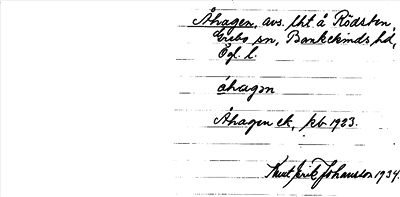 Åhagen, avs. lht å Rödsten,
Grebo sn, Bankekinds hd,
Ögl. l.
åhagən
Åhagen ek, kb 1923.
Knut Erik Johansson 1934.